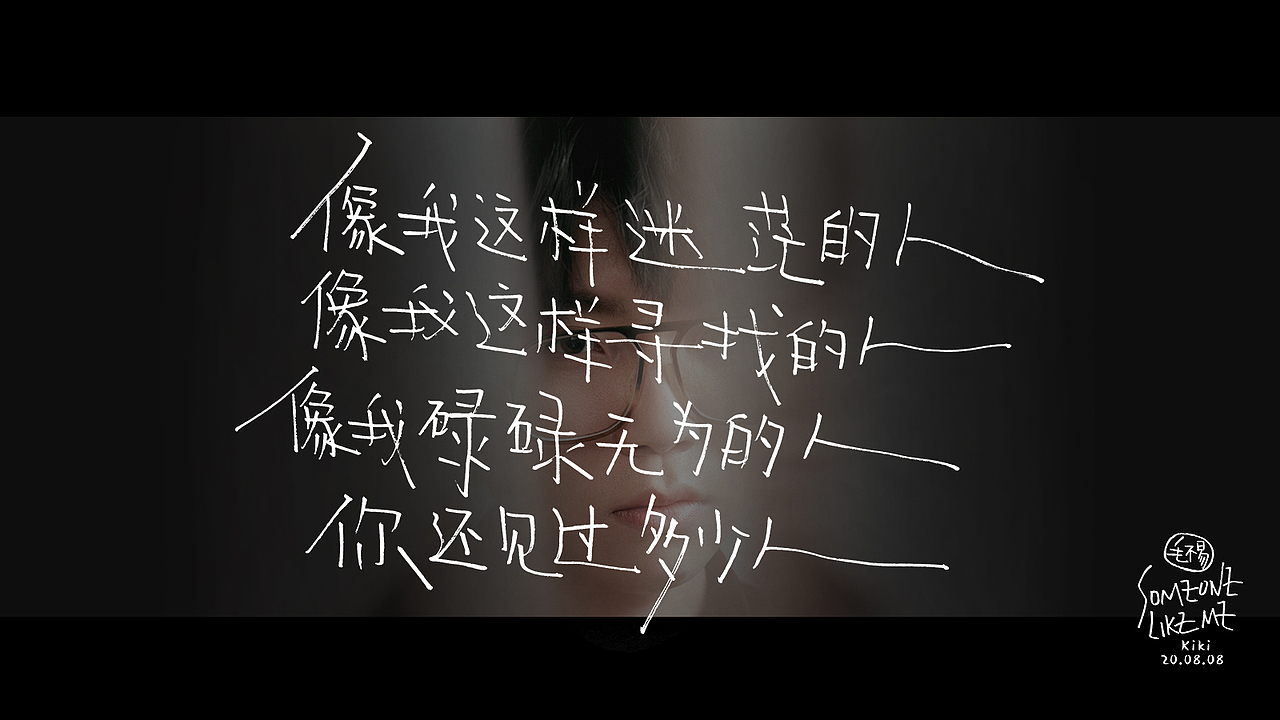 像我这样迷茫的人
像我这样寻找的人
像我碌碌无为的人
你还见过多少人
毛不易
SOMEONE
LIKE ME
Kiki
20.08.08